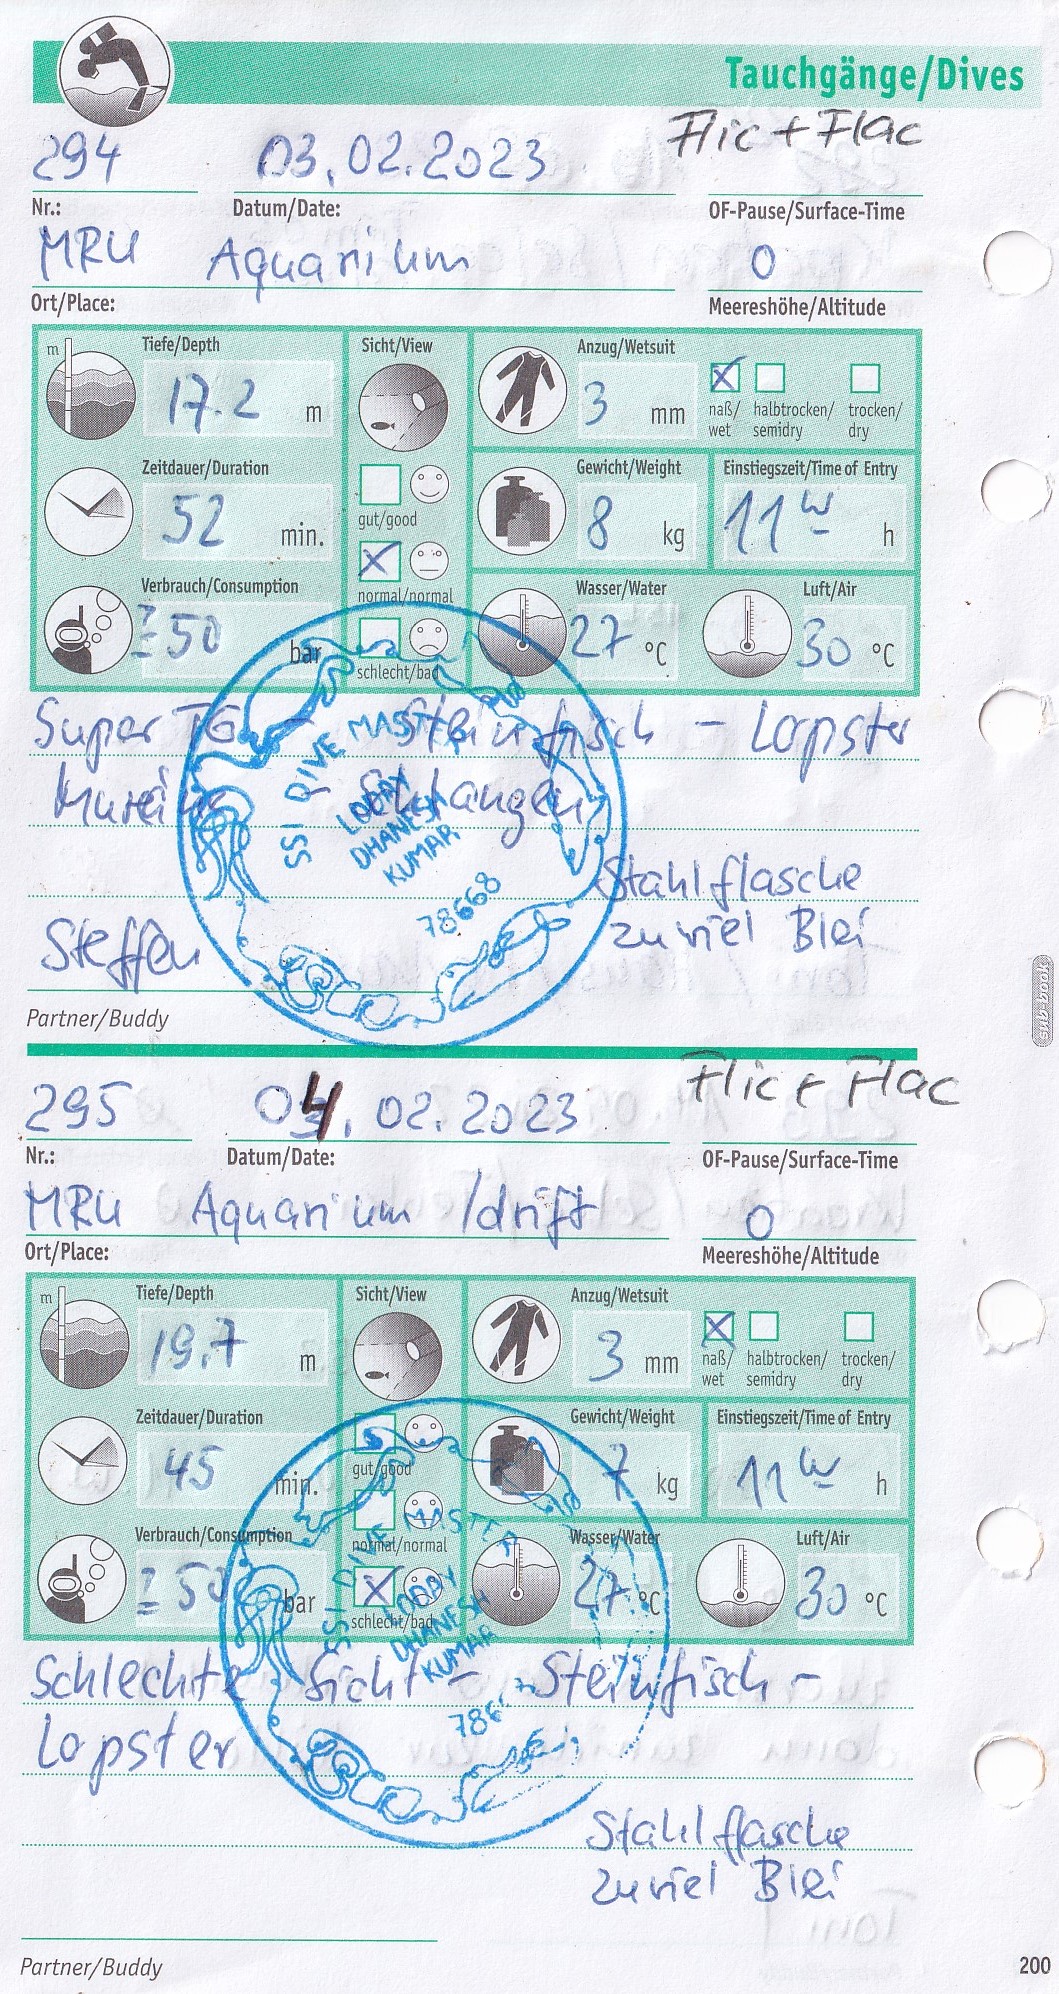 Tauchgänge/Dives
Flic + Flac
294 03.02.2023
Nr.: Datum/Date: OF-Pause/Surface-Time
MRU Aquarium 0
Ort/Place: Meereshöhe/Altitude
m Tiefe/Depth Sicht/View Anzug/Wetsuit
17.2 m 3 mm naß/ wet halbtrocken/ semidry trocken/ dry
Zeitdauer/Duration Gewicht/Weight Einstiegszeit/Time of Entry
52 min. gut/good 8 kg 11 h
Verbrauch/Consumption normal/normal Wasser/Water Luft/Air
50 bar schlecht/bad 27 °C 30 °C
Super TG - Steinfisch - Lopster
Muräne - Schlangen
SSI DIVE MASTER
LODAY
DHANESH
KUMAR
78668
Stahlflasche
zuviel Blei
Steffen
Partner/Buddy
sub-book
Flic + Flac
295 04.02.2023
Nr.: Datum/Date: OF-Pause/Surface-Time
MRU Aquarium /drift 0
Ort/Place: Meereshöhe/Altitude
m Tiefe/Depth Sicht/View Anzug/Wetsuit
19.7 m 3 mm naß/ wet halbtrocken/ semidry trocken/ dry
Zeitdauer/Duration Gewicht/Weight Einstiegszeit/Time of Entry
45 min. gut/good 7 kg 11 h
Verbrauch/Consumption normal/normal Wasser/Water Luft/Air
50 bar schlecht/bad 27 °C 30 °C
SSI DIVE MASTER
LODAY
DHANESH
KUMAR
Schlechte Sicht - Steinfisch -
Lopster
Stahlflasche
zuviel Blei
Partner/Buddy
200